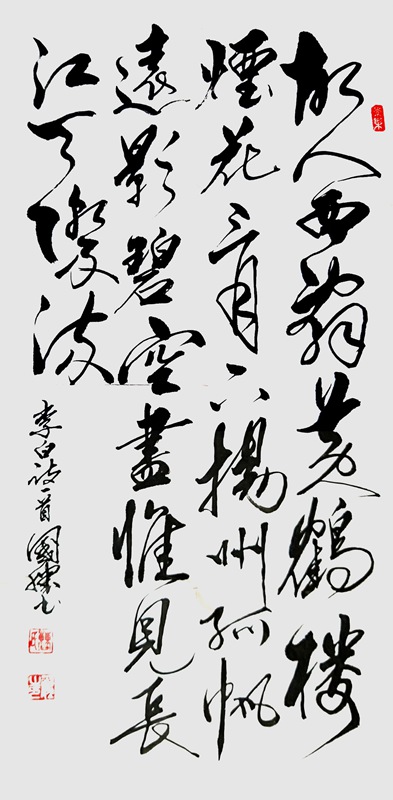 故人西辭黄鶴楼
煙花三月下揚州孤帆
遠影碧空盡惟見長
江天際流
李白詩一首國